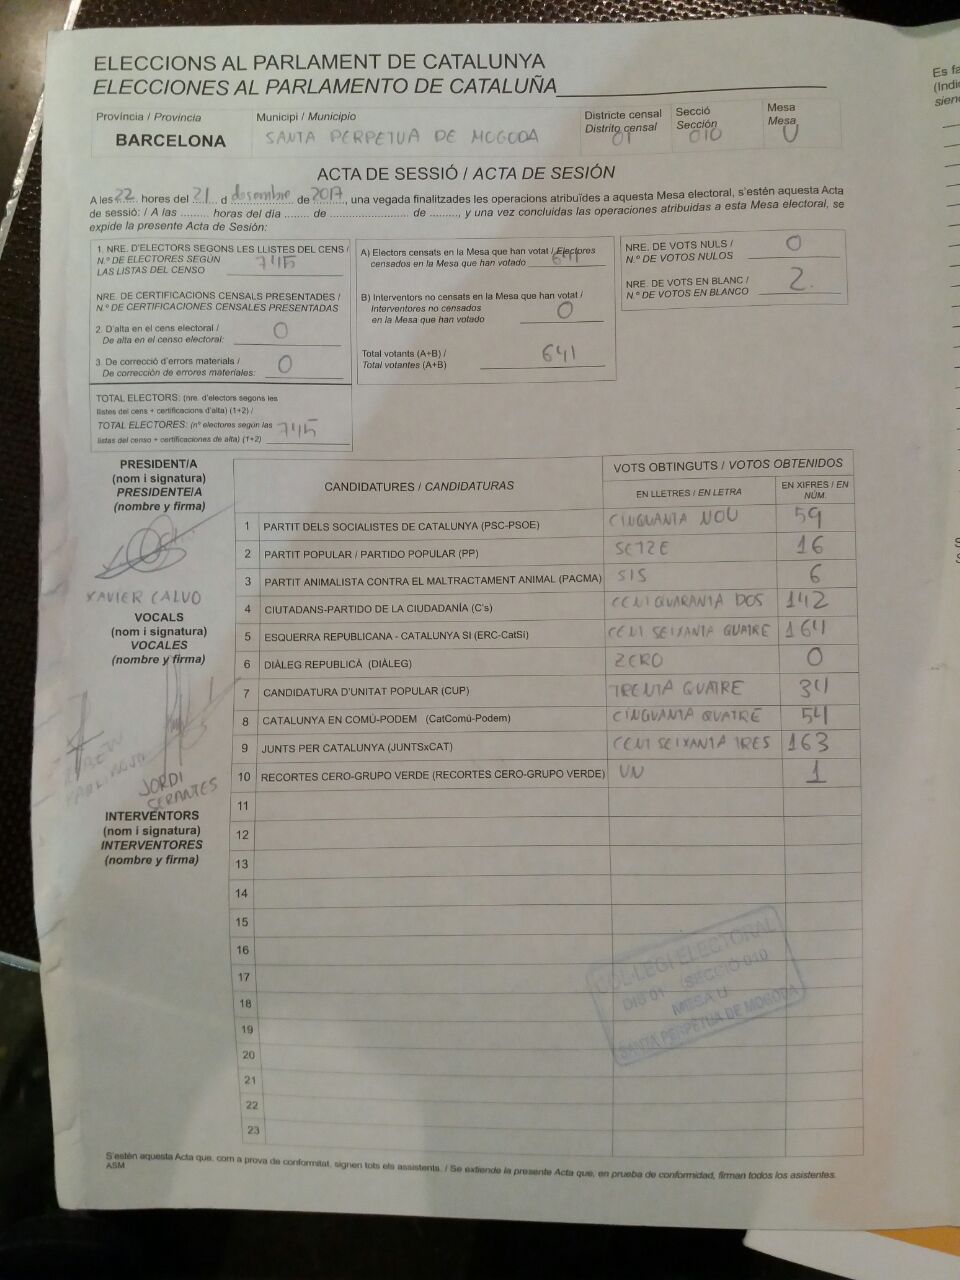 ELECCIONS AL PARLAMENT DE CATALUNYA
ELECCIONES AL PARLAMENTO DE CATALUÑA
Província / Provincia
BARCELONA
Municipi / Municipio
SANTA PERPETUA DE MOGODA
Districte censal
Distrito censal
01
Secció
Sección
010
Mesa
Mesa
U
ACTA DE SESSIÓ / ACTA DE SESIÓN
A les 22 hores del 21 d desembre de 2017, una vegada finalitzades les operacions atribuïdes a aquesta Mesa electoral, s'estén aquesta Acta
de sessió: / A las ......... horas del día ....... de ...................... de ........, y una vez concluidas las operaciones atribuidas a esta Mesa electoral, se
expide la presente Acta de Sesión:
1. NRE. D'ELECTORS SEGONS LES LLISTES DEL CENS /
N.º DE ELECTORES SEGÚN
LAS LISTAS DEL CENSO 745
NRE. DE CERTIFICACIONS CENSALS PRESENTADES /
N.º DE CERTIFICACIONES CENSALES PRESENTADAS
2. D'alta en el cens electoral /
De alta en el censo electoral: 0
3. De correcció d'errors materials /
De corrección de errores materiales: 0
TOTAL ELECTORS: (nre. d'electors segons les
llistes del cens + certificacions d'alta) (1+2) /
TOTAL ELECTORES: (nº electores según las
listas del censo + certificaciones de alta) (1+2) 745
A) Electors censats en la Mesa que han votat / Electores
censados en la Mesa que han votado 641
B) Interventors no censats en la Mesa que han votat /
Interventores no censados
en la Mesa que han votado 0
Total votants (A+B) /
Total votantes (A+B) 641
NRE. DE VOTS NULS /
N.º DE VOTOS NULOS 0
NRE. DE VOTS EN BLANC /
N.º DE VOTOS EN BLANCO 2
PRESIDENT/A
(nom i signatura)
PRESIDENTE/A
(nombre y firma)
XAVIER CALVO
VOCALS
(nom i signatura)
VOCALES
(nombre y firma)
JORDI
CERANTES
INTERVENTORS
(nom i signatura)
INTERVENTORES
(nombre y firma)
CANDIDATURES / CANDIDATURAS
VOTS OBTINGUTS / VOTOS OBTENIDOS
EN LLETRES / EN LETRA
EN XIFRES / EN NÚM.
1 PARTIT DELS SOCIALISTES DE CATALUNYA (PSC-PSOE) CINQUANTA NOU 59
2 PARTIT POPULAR / PARTIDO POPULAR (PP) SETZE 16
3 PARTIT ANIMALISTA CONTRA EL MALTRACTAMENT ANIMAL (PACMA) SIS 6
4 CIUTADANS-PARTIDO DE LA CIUDADANÍA (C's) CENT QUARANTA DOS 142
5 ESQUERRA REPUBLICANA - CATALUNYA SI (ERC-CatSI) CENT SEIXANTA QUATRE 164
6 DIÀLEG REPUBLICÀ (DIÀLEG) ZERO 0
7 CANDIDATURA D'UNITAT POPULAR (CUP) TRENTA QUATRE 34
8 CATALUNYA EN COMÚ-PODEM (CatComú-Podem) CINQUANTA QUATRE 54
9 JUNTS PER CATALUNYA (JUNTSxCAT) CENT SEIXANTA TRES 163
10 RECORTES CERO-GRUPO VERDE (RECORTES CERO-GRUPO VERDE) UN 1
11
12
13
14
15
16
17
18
19
20
21
22
23
COL·LEGI ELECTORAL
DIS 01 SECCIÓ 010
MESA U
SANTA PERPÈTUA DE MOGODA
S'estén aquesta Acta que, com a prova de conformitat, signen tots els assistents. / Se extiende la presente Acta que, en prueba de conformidad, firman todos los asistentes.
ASM
Es fa
(Indi
sien